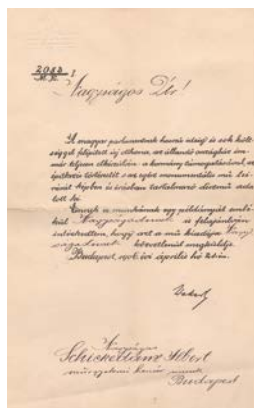 2083 I
M.E.
Nagyságos Úr!
A magyar parlamentnek hosszú időn és sok költ-
séggel felépített új otthona, az állandó országház im-
már teljesen elkészülvén, a kormány támogatásával, az
építkezés történetét s az egész monumentális mű le-
írását képben és írásban tartalmazó díszmű ada-
tott ki.
Ennek a munkának egy példányát emlé-
kül Nagyságodnak is felajánlván
intézkedtem, hogy azt a mű kiadója Nagy-
ságodnak közvetlenül megküldje.
Budapest, évi április hó
Nagyságos
Schickedanz Albert
műegyetemi tanár urnak
Budapest